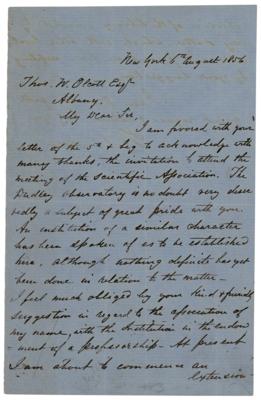 New York 6th August 1856
Thos. W. Olcott Esqr
Albany.
My Dear Sir,
I am favored with your
letter of the 5th & beg to acknowledge with
many thanks, the invitation to attend the
meeting of the Scientific Association. The
Dudley observatory is no doubt very deser
vedly a subject of great pride with you.
An institution of a similar character
has been spoken of as to be established
here, although nothing definite has yet
been done in relation to the matter—
I feel much obliged by your kind & friendly
suggestion in regard to the association of
my name, with the Institution in the endow
-ment of a professorship— At present
I am about to commence an
extension